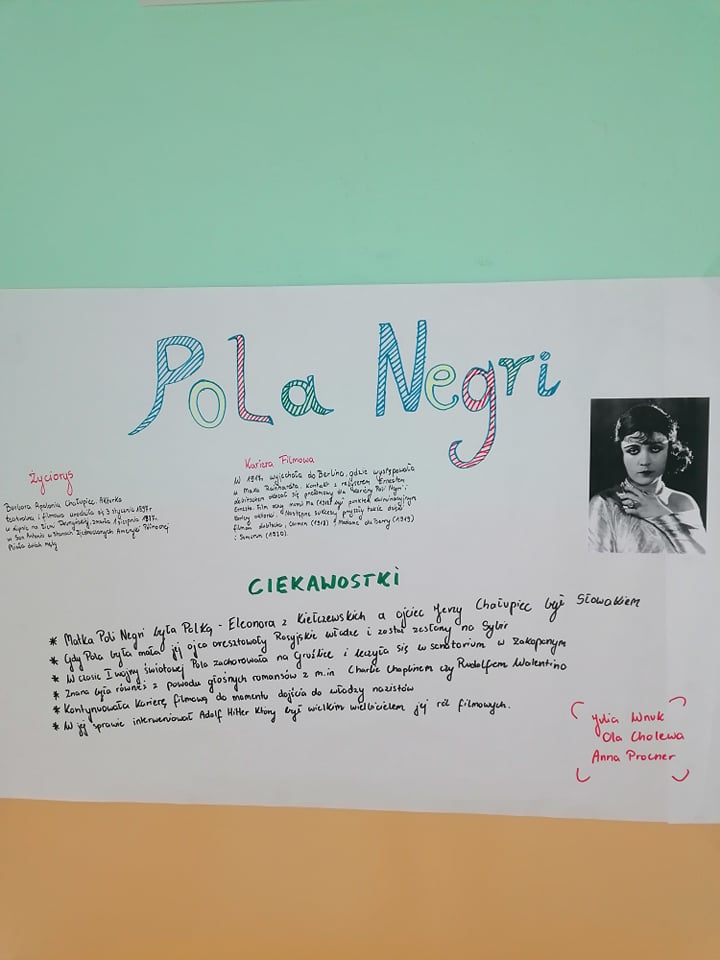 Pola Negri
Życiorys
Barbara Apolonia Chałupiec. Aktorka
teatralna i filmowa urodziła się 3 stycznia 1897r.
w Lipnie na Ziemi zmarła 1 sierpnia 1987r.
w San Antonio w Stanach Zjednoczonych Ameryki Północnej
Kariera Filmowa
W 1917r. wyjechała do Berlina, gdzie występowała
u Maxa Reinhardta. Kontakt z reżyserem Ernestem
okazać się przełomowy dla kariery Poli Negri i
Ernesta. Film oczy mumii Ma (1918r.) był
kariery aktorki. Następne sukcesy przyszły także dzięki
filmom Carmen (1918) Madame du Barry (1919)
i Sumurun (1920).
CIEKAWOSTKI
* Matka Poli Negri była Polką - Eleonora z Kiełczewskich a ojciec Jerzy Chałupiec był Słowakiem
* Gdy Pola była mała jej ojca aresztowały Rosyjskie władze i został zesłany na Sybir
* W czasie I wojny światowej Pola zachorowała na Gruźlicę i leczyła się w sanatorium w Zakopanym
* Znana była również z powodu głośnych romansów z m.in Charlie Chaplinem czy Rudolfem Walentino
* Kontynuowała karierę filmową do momentu dojścia do władzy nazistów
* W jej sprawie interweniował Adolf Hitler który był wielkim wielbicielem jej ról filmowych.
Julia Wnuk
Ola Cholewa
Anna Procner